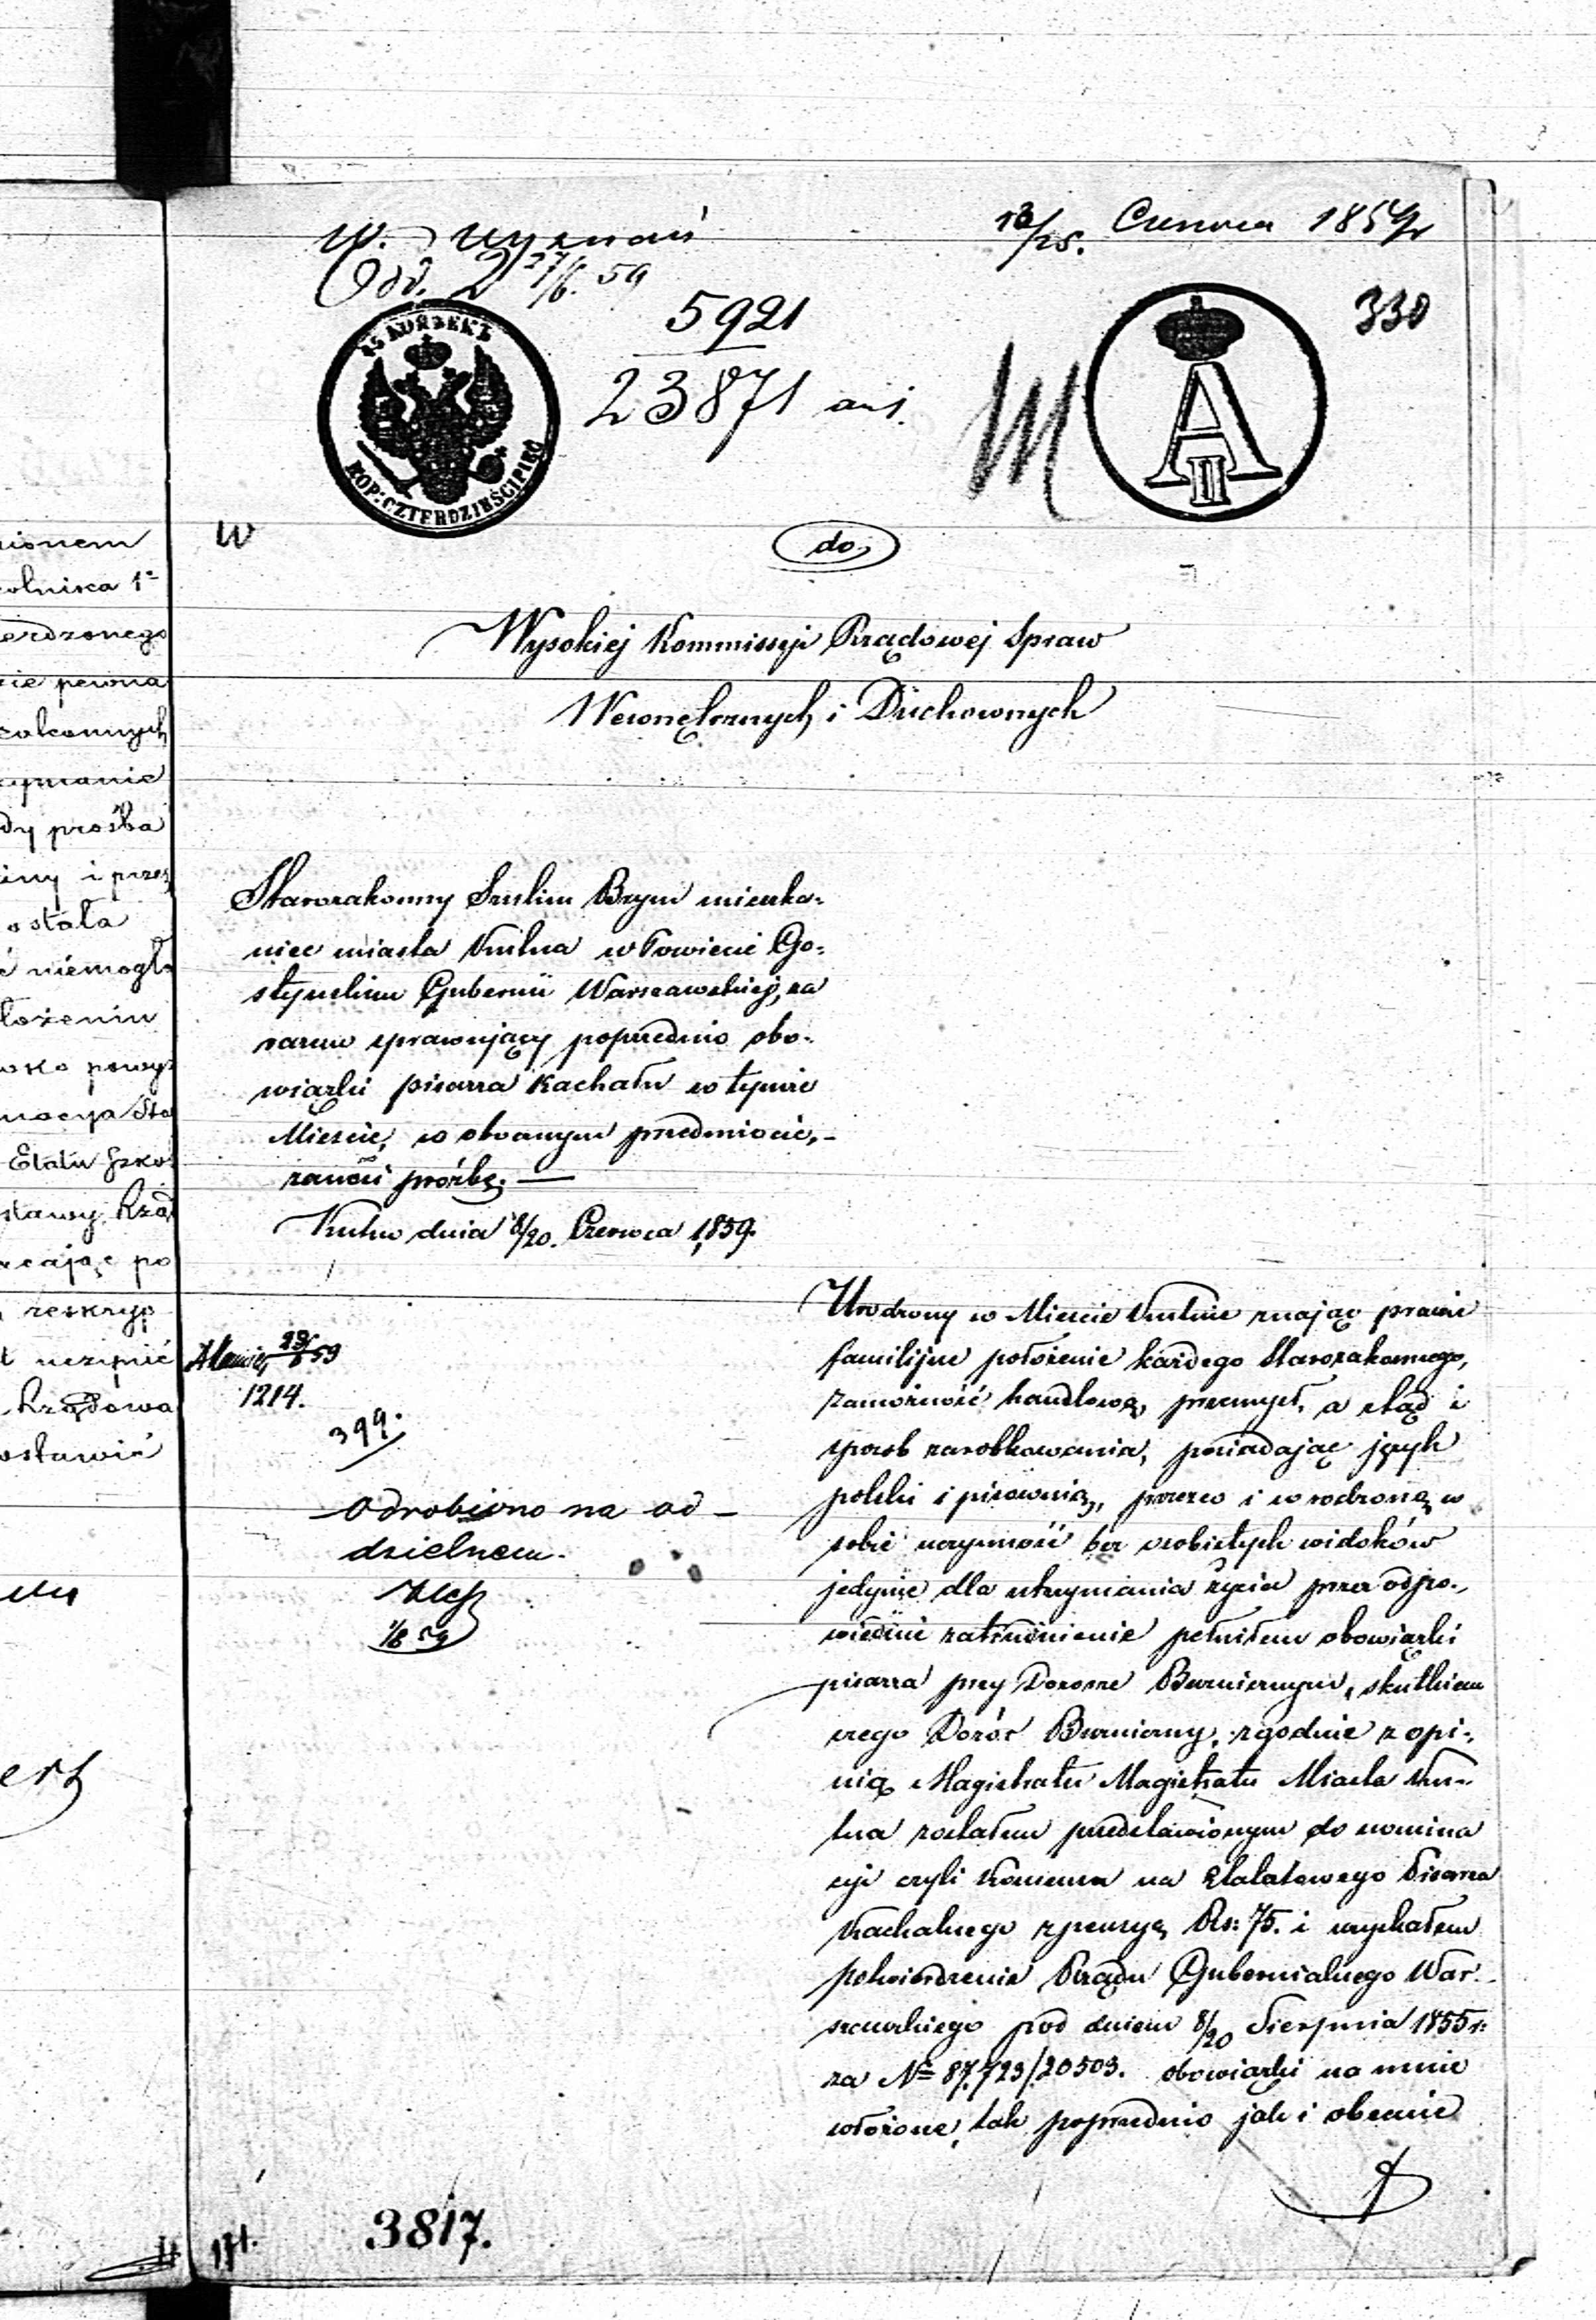 13/25. Czerwca 1859 r
Odd. 2 27/6. 59
330
5921
23871
45 KOPѢEKЪ
KOP: CZTERDZIEŚCI PIĘĆ
A II
W
do
Wysokiej Kommissyi Rządowej Spraw
Wewnętrznych i Duchownych
Starozakonny Szulim Brym mieszka-
niec miasta Kutna w Powiecie Go-
stynskim Gubernii Warszawskiej, za
razem sprawujący poprzednio obo-
wiązki pisarza Kachału w tymże
Mieście, w obocznym przedmiocie,
zanosi prośbę. —
Kutno dnia 8/20. Czerwca 1859.
Urodzony w Mieście Kutnie znając prawie
familijne położenie każdego Starozakonnego,
zamożność handlową, przemysł, a stąd i
sposób zarobkowania, posiadając język
polski i pisownią, przezco i wrodzoną w
sobie czynność bez osobistych widoków
jedynie dla utrzymania życia przez odpo-
wiednie zatrudnienie pełniłem obowiązki
pisarza przy Dozorze Bużnicznym, skutkiem
czego Dozór Bużniczny, zgodnie z opi-
nią Magistratu Magistratu Miasta Ku-
tna zostałem przedstawionym do nomina
cyi czyli na Etatowego Pisarza
Kachalnego z pensyą Rs: 75. i uzyskałem
potwierdzenie Rządu Gubernialnego War-
szawskiego pod dniem 8/20 Sierpnia 1855 r:
za № 87,723/20503. obowiązki na mnie
włożone, tak poprzednio jak i obecnie
29/6 59
1214.
399.
Odrobiono na od-
dzielnem.
1/8 59
3817.
171.
ionem
olnika 1
erdzonego
ie pewna
zakonnych
zymanie
dy prośba
iny i przez
ostała
ć niemogło
łożeniu
Etatu Szko
cając po
reskryp
uczynić
Rządowa
ostawić